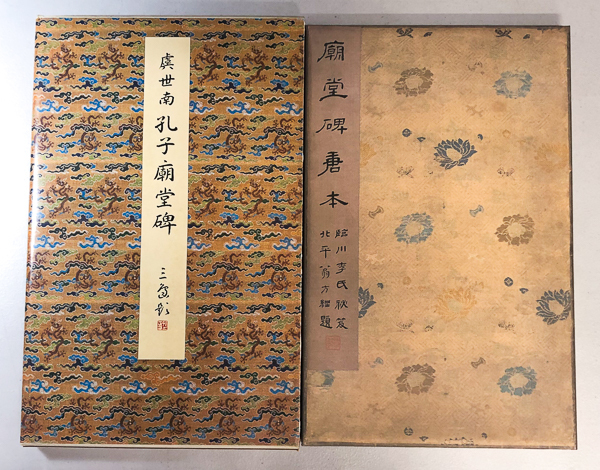 虞世南 孔子廟堂碑
廟堂碑唐本
臨川李氏秘笈
北平翁方綱題